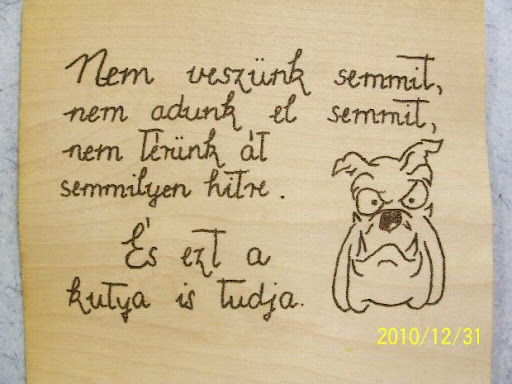 Nem veszünk semmit,
nem adunk el semmit,
nem térünk át
semmilyen hitre.
És ezt a
kutya is tudja.
2010/12/31